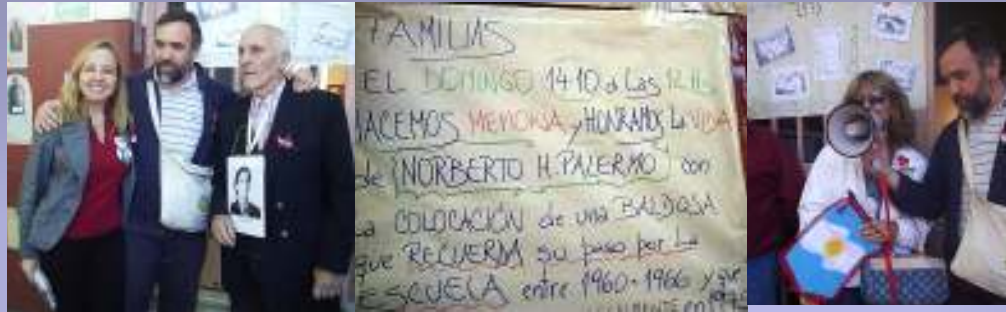 FAMILIAS
EL DOMINGO 14.10 a Las 12 Hs
HACEMOS MEMORIA y HONRAMOS La VIDA
de (NORBERTO H. PALERMO) con
La COLOCACIÓN de una BALDOSA
que RECUERDA su paso por La
ESCUELA entre 1960-1966 y que